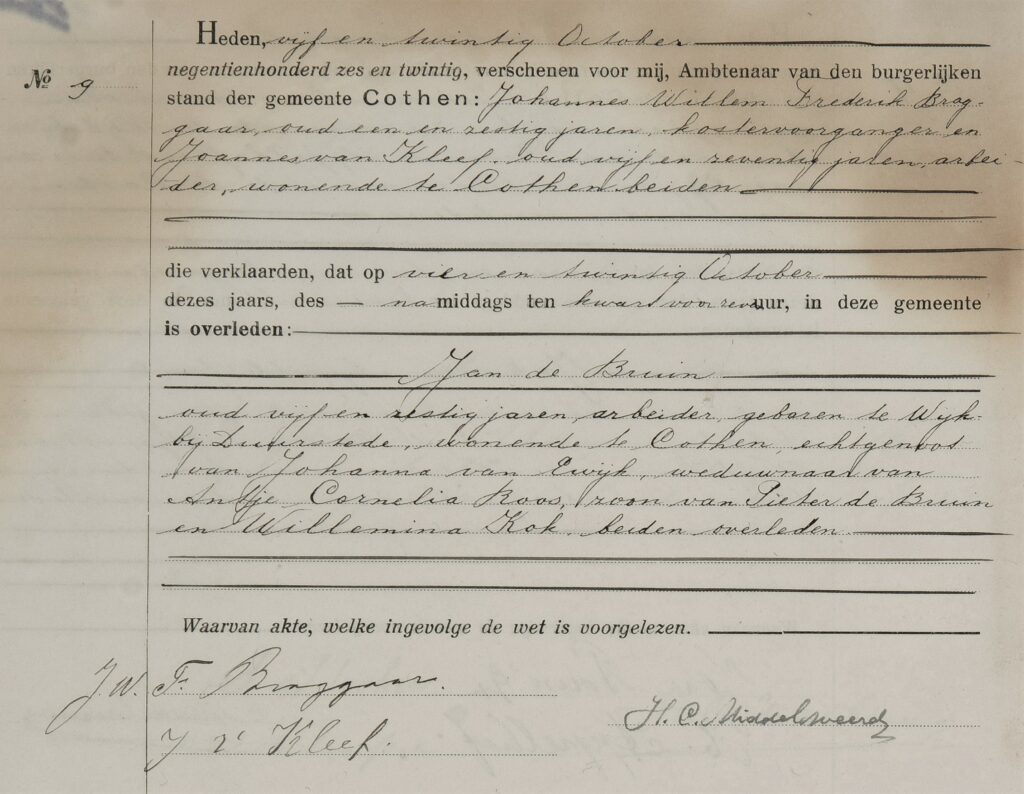 № 9
Heden, vijf en twintig October
negentienhonderd zes en twintig, verschenen voor mij, Ambtenaar van den burgerlijken
stand der gemeente Cothen: Johannes Willem Frederik Brag-
gaar, oud een en zestig jaren, kostervoorganger en
Joannes van Kleef, oud vijf en zeventig jaren, arbei-
der, wonende te Cothen beiden
die verklaarden, dat op vier en twintig October
dezes jaars, des — namiddags ten kwart voor zeven uur, in deze gemeente
is overleden:
Jan de Bruin
oud vijf en zestig jaren, arbeider, geboren te Wijk
bij Duurstede, wonende te Cothen, echtgenoot
van Johanna van Ewijk, weduwnaar van
Antje Cornelia Roos, zoon van Pieter de Bruin
en Willemina Kok, beiden overleden
Waarvan akte, welke ingevolge de wet is voorgelezen.
J. W. F. Braggaar.
J v Kleef.
H. C. Middelweerd